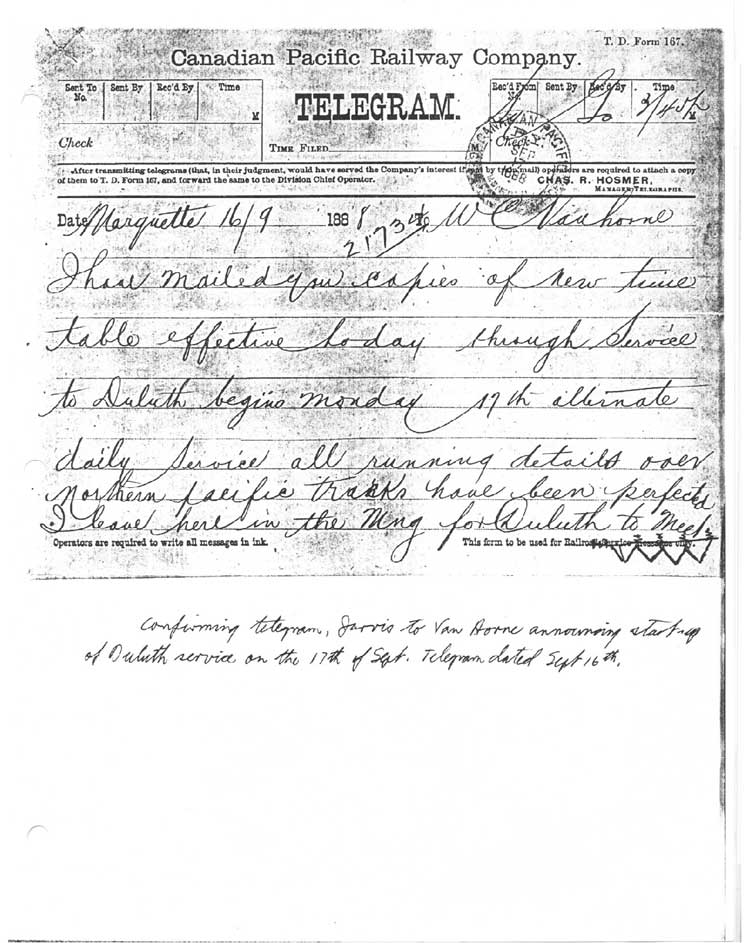 T. D. Form 167.
Canadian Pacific Railway Company.
Sent To No. Sent By Rec'd By Time M
TELEGRAM.
Rec'd From Sent By Rec'd By Time M
Check
TIME FILED M. Check
After transmitting telegrams (that, in their judgment, would have served the Company's interest if sent by train mail) operators are required to attach a copy
of them to T. D. Form 167, and forward the same to the Division Chief Operator. CHAS. R. HOSMER,
MANAGER TELEGRAPHS.
CANADIAN PACIFIC
SEP
1888
Date Marquette 16/9 1888 To W C Vanhorne
2173
I have mailed you copies of new time
table effective today through Service
to Duluth begins Monday 17th alternate
daily Service all running details over
Northern Pacific tracks have been perfected
I leave here in the Mng for Duluth to Meet
Operators are required to write all messages in ink. This form to be used for Railroad Service Messages only.
Confirming telegram, Jarvis to Van Horne announcing start-up
of Duluth service on the 17th of Sept. Telegram dated Sept 16th.